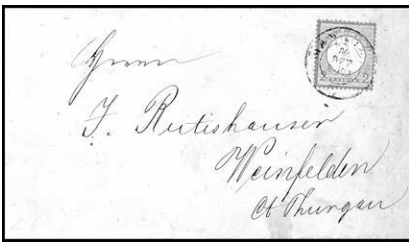 Herrn
J. Rutishauser
Weinfelden
Ct. Thurgau